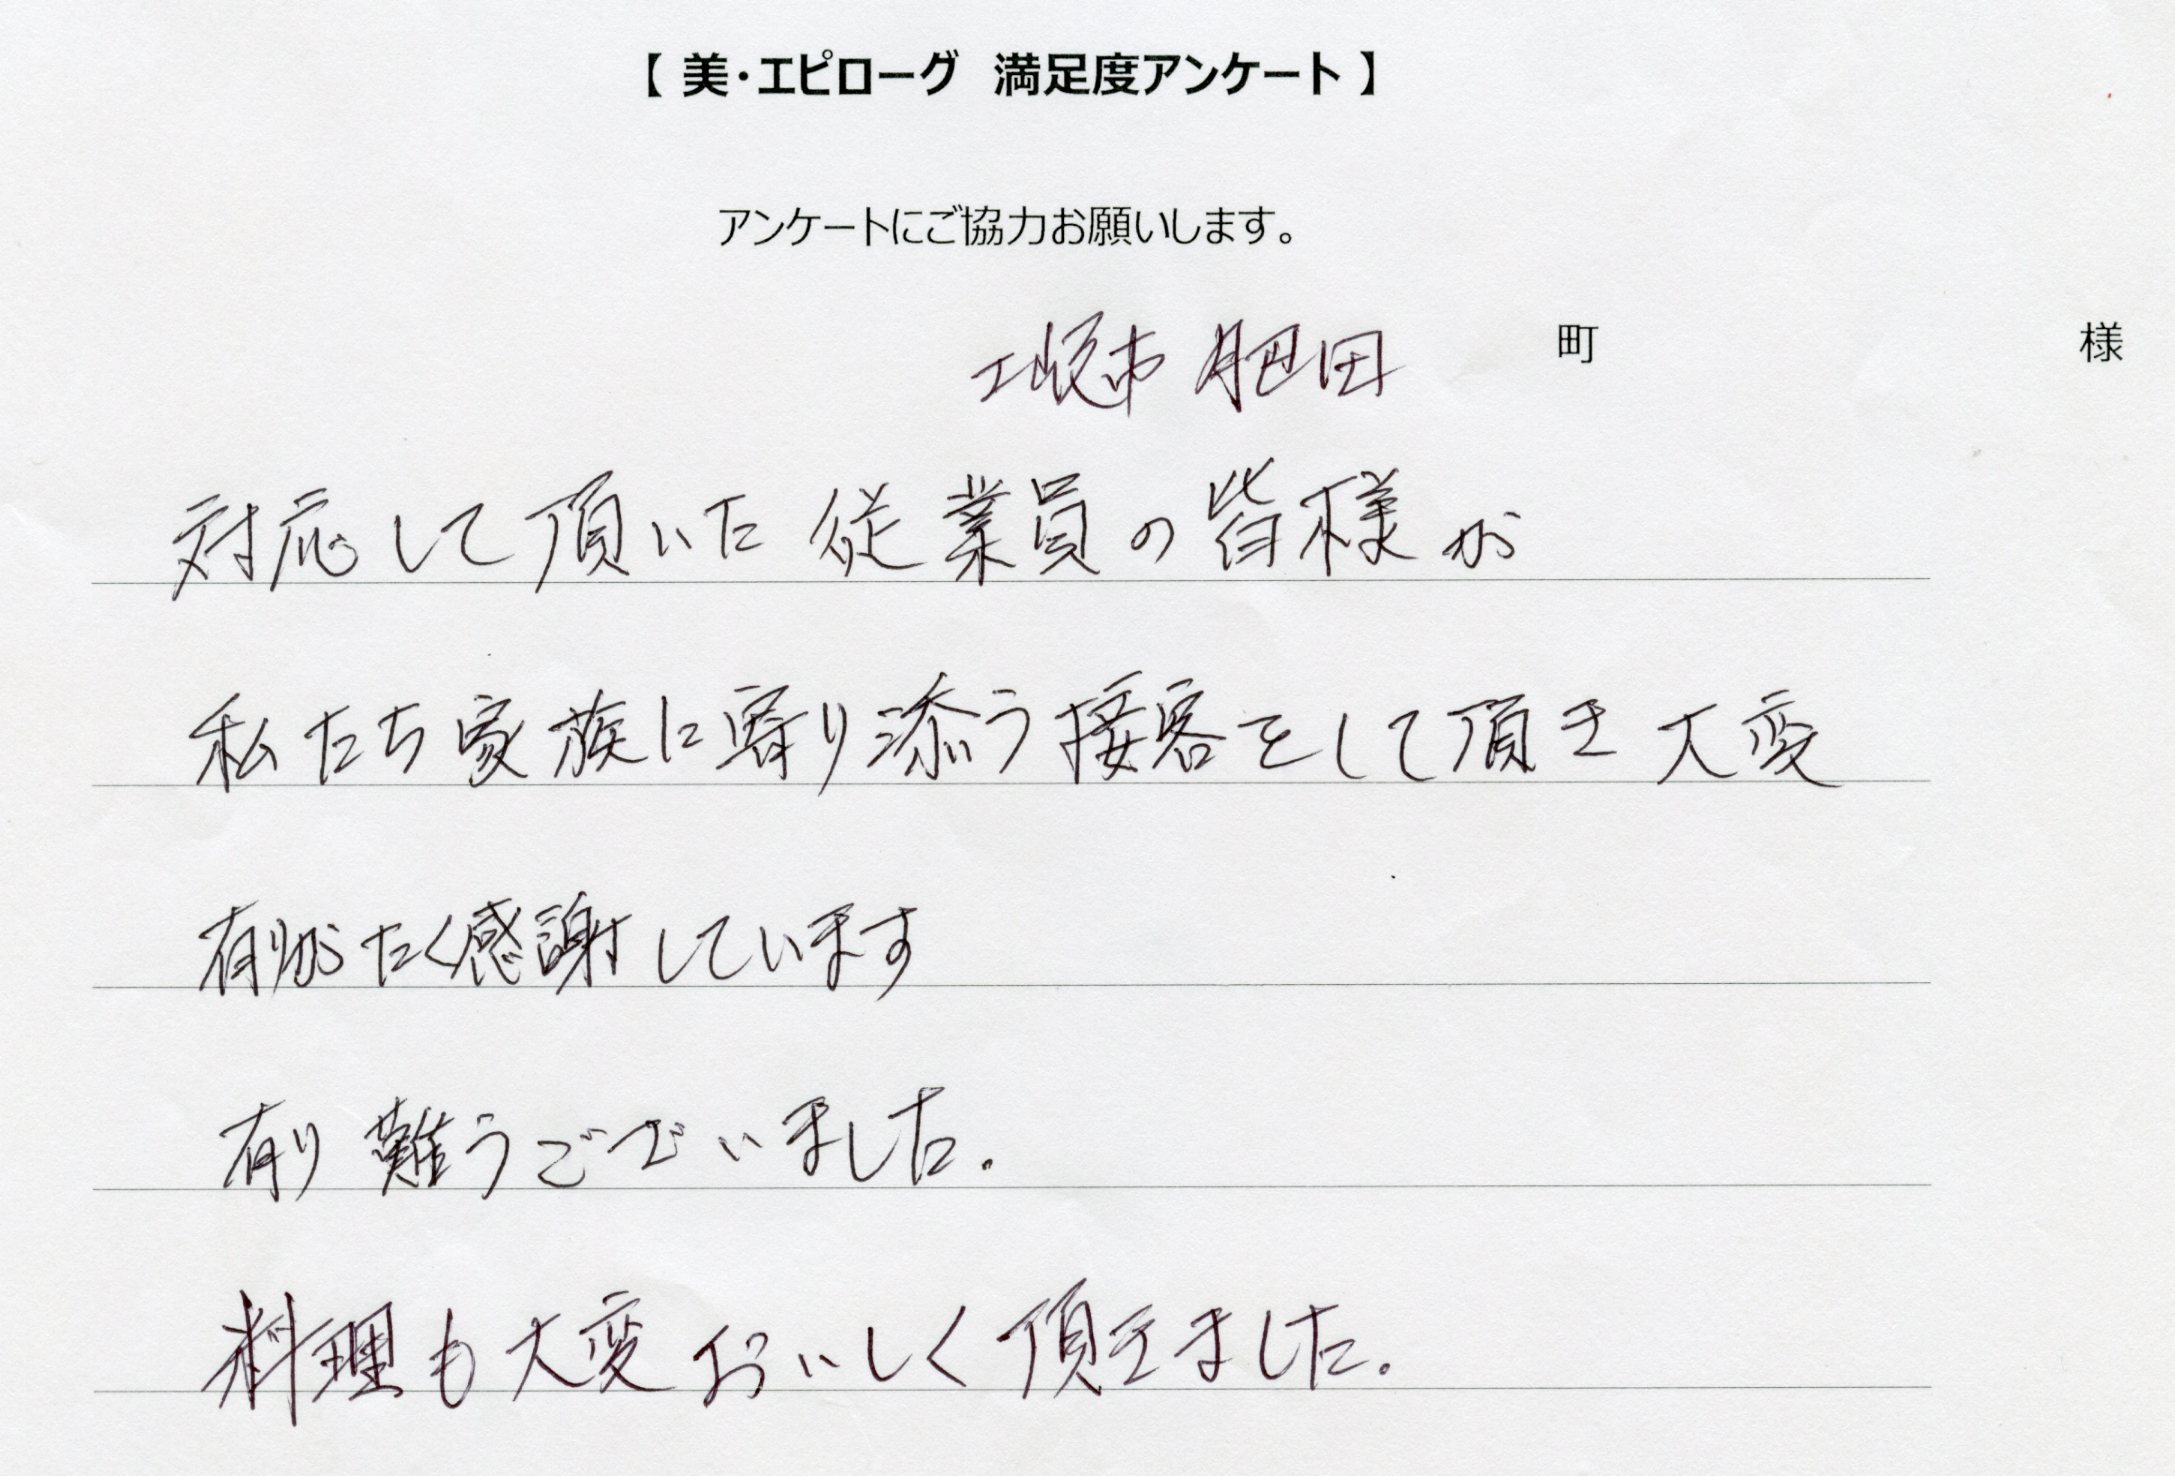 【 美・エピローグ 満足度アンケート 】
アンケートにご協力お願いします。
土岐市 肥田 町 様
対応して頂いた従業員の皆様が
私たち家族に寄り添う接客をして頂き大変
有りがたく感謝しています
有り難うございました.
料理も大変おいしく頂きました.